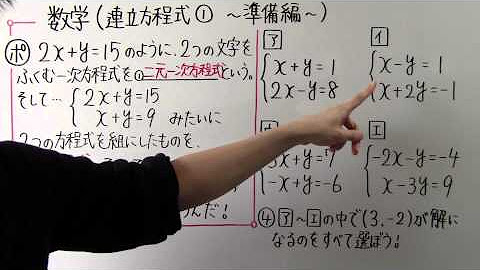 数学(連立方程式① ～準備編～)
ポ 2x+y=15のように、2つの文字を
ふくむ一次方程式を①二元一次方程式という。
そして… 2x+y=15
x+y=9 みたいに
2つの方程式を組にしたものを、
んだ!
ア
x+y=1
2x-y=8
イ
x-y=1
x+2y=-1
x+y=7
-x+y=-6
エ
-2x-y=-4
x-3y=9
④ア～エの中で(3,-2)が解に
なるのをすべて選ぼう!